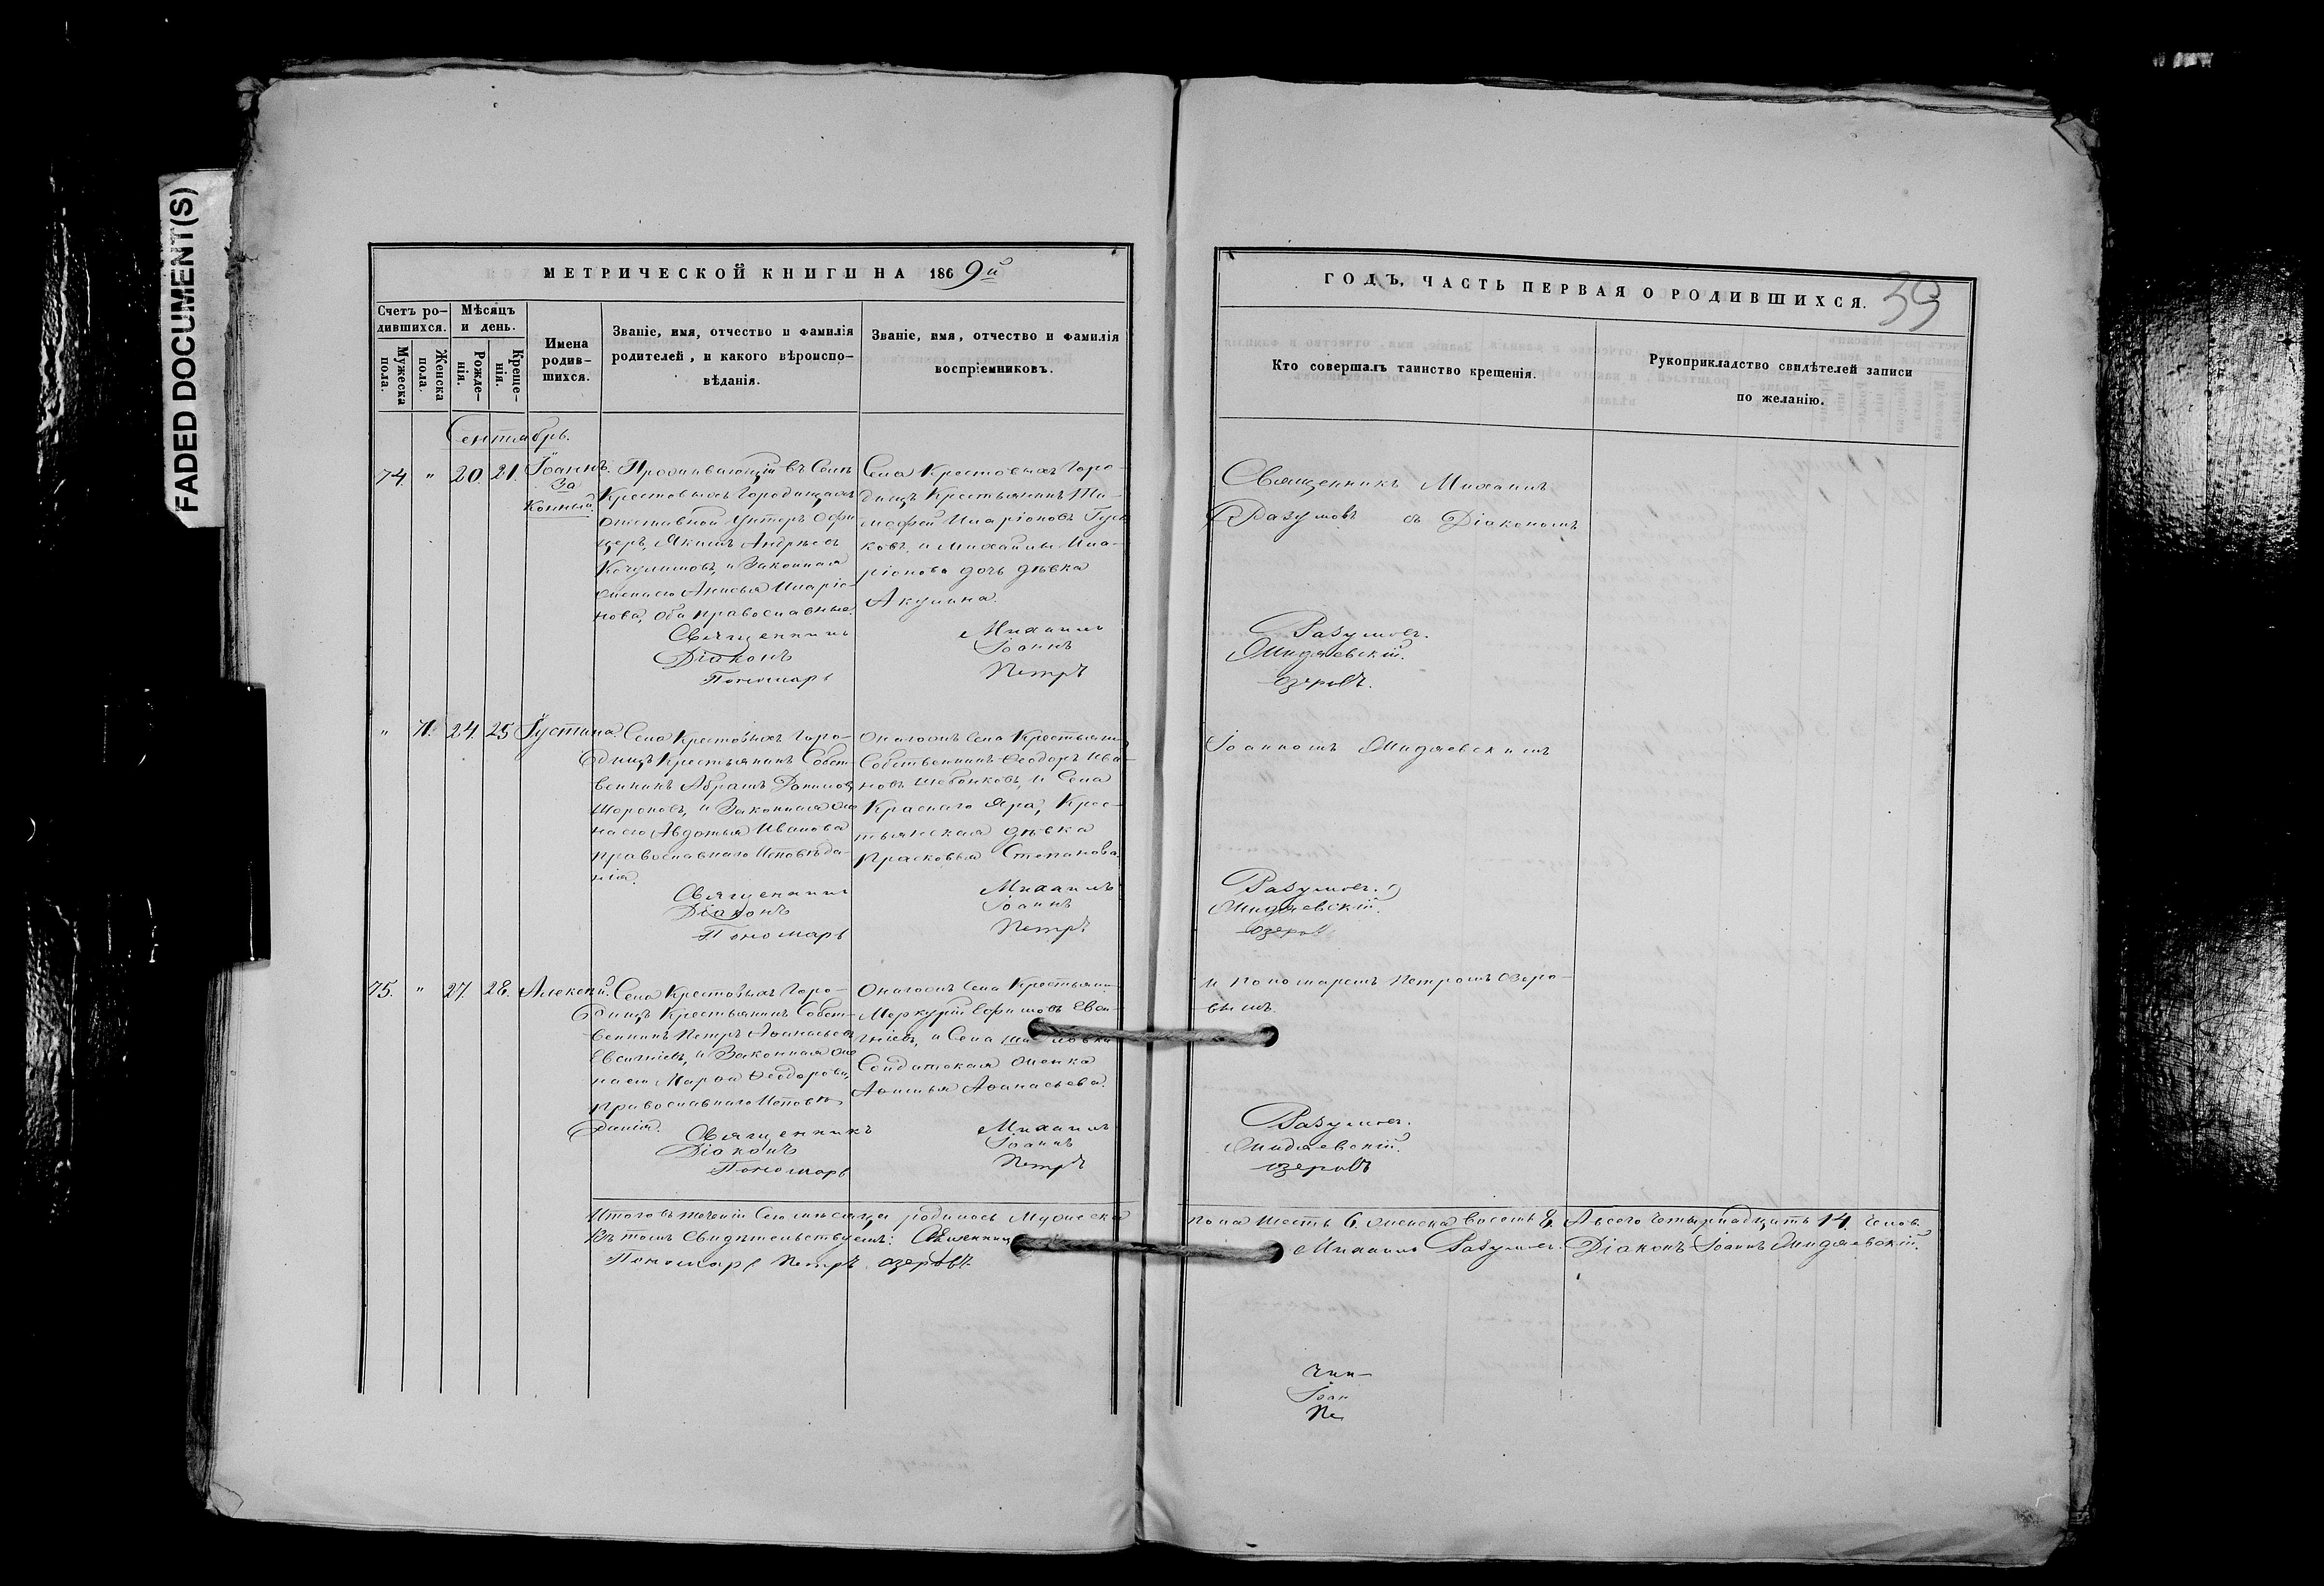 FADED DOCUMENT(S)
МЕТРИЧЕСКОЙ КНИГИ НА 1869й
Счетъ ро-
дившихся.
Мужеска
пола.
Женска
пола.
Мѣсяцъ
и день.
Рожде-
нія.
Креще-
нія.
Имена
родив-
шихся.
Званіе, имя, отчество и фамилія
родителей, и какого вѣроиспо-
вѣданія.
Званіе, имя, отчество и фамилія
воспріемниковъ.
Сентябрь.
74. " 20. 21. Іоаннъ.
За
Конный.
Проживающій въ Селѣ
Крестовыхъ Городищахъ
отставной Унтеръ Офи
церъ, Якимъ Андреевъ
и Законная
жена его Анисья Иларіо-
нова, оба православные.
Села Крестовыхъ Горо-
дищъ Крестьянинъ Ти-
мофей Иларіоновъ
и Михайлы Ила-
ріонова дочь дѣвка
Акулина.
Священникъ Михаилъ
Діаконъ Іоаннъ
Пономарь Петръ
" 71. 24. 25 Іустина.
Села Крестовыхъ Горо-
дищъ Крестьянинъ Собст-
венникъ Абрамъ
и Законная же
на его Авдотья Иванова
православнаго Исповѣда-
нія.
Онагожъ Села Крестьянинъ
Собственникъ Ѳеодоръ Ива-
новъ и Села
Краснаго Яра, Крес-
тьянская дѣвка
Прасковья Степанова.
Священникъ Михаилъ
Діаконъ Іоаннъ
Пономарь Петръ
75. " 27. 28. Алексій.
Села Крестовыхъ Горо-
дищъ Крестьянинъ Собст-
венникъ Петръ Аѳанасьевъ
и Законная же
на его Марѳа Ѳеодорова,
православнаго Исповѣ
данія.
Онагожъ Села Крестьянинъ
Меркурій Ефимовъ
и Села
Солдатская женка
Аѳанасьева.
Священникъ Михаилъ
Діаконъ Іоаннъ
Пономарь Петръ
Итого въ теченіи Сего мѣсяца родилось Мужеска
Въ томъ Свидѣтельствуемъ: Священникъ
Пономарь Петръ Озеровъ.
ГОДЪ, ЧАСТЬ ПЕРВАЯ О РОДИВШИХСЯ.
Кто совершалъ таинство крещенія.
Рукоприкладство свидѣтелей записи
по желанію.
Священникъ Михаилъ
Разумовъ съ Діакономъ
Разумовъ.
Миндяевскій.
Озеровъ.
Іоанномъ Миндяевскимъ
Разумовъ.
Миндяевскій.
Озеровъ
и пономаремъ Петромъ Озеро-
вымъ.
Разумовъ.
Миндяевскій.
Озеровъ
пола шесть 6. женска восемь 8. А всего Четырнадцать 14. Челов.
Михаилъ Разумовъ. Діаконъ Іоаннъ Миндяевскій.
Іоан
Пе